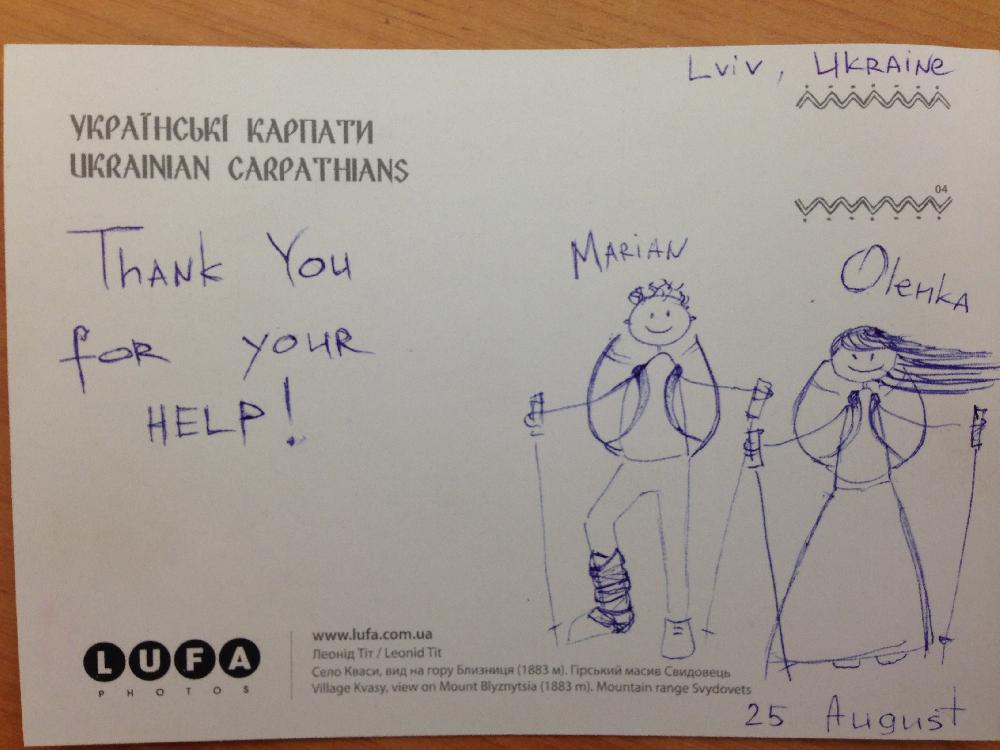 Lviv, UKRAINE
УКРАЇНСЬКІ КАРПАТИ
UKRAINIAN CARPATHIANS
04
THANK YOU
for YOUR
HELP!
MARIAN
Olenka
LUFA
PHOTOS
www.lufa.com.ua
Леонід Тіт / Leonid Tit
Село Кваси, вид на гору Близниця (1883 м). Гірський масив Свидовець
Village Kvasy, view on Mount Blyznytsia (1883 m). Mountain range Svydovets
25 August